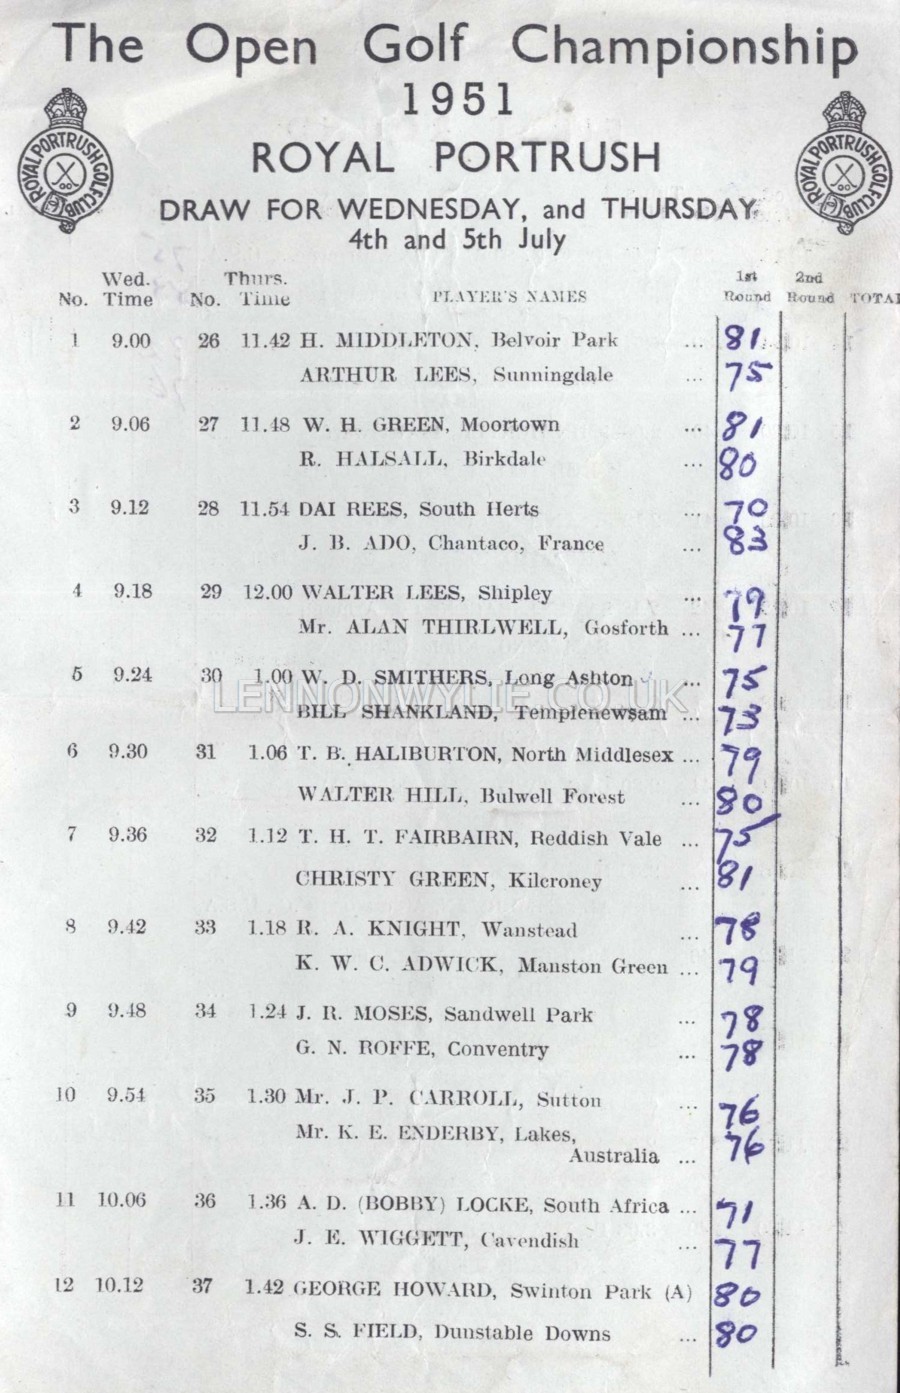 The Open Golf Championship
1951
ROYAL PORTRUSH
DRAW FOR WEDNESDAY, and THURSDAY
4th and 5th July
ROYAL PORTRUSH GOLF CLUB
ROYAL PORTRUSH GOLF CLUB
Wed. Thurs. 1st 2nd
No. Time No. Time PLAYER'S NAMES Round Round TOTAL
1 9.00 26 11.42 H. MIDDLETON, Belvoir Park ... 81
ARTHUR LEES, Sunningdale ... 75
2 9.06 27 11.48 W. H. GREEN, Moortown ... 81
R. HALSALL, Birkdale ... 80
3 9.12 28 11.54 DAI REES, South Herts ... 70
J. B. ADO, Chantaco, France ... 83
4 9.18 29 12.00 WALTER LEES, Shipley ... 79
Mr. ALAN THIRLWELL, Gosforth ... 77
5 9.24 30 1.00 W. D. SMITHERS, Long Ashton ... 75
LENNONWYLIE.CO.UK
BILL SHANKLAND, Templenewsam ... 73
6 9.30 31 1.06 T. B. HALIBURTON, North Middlesex ... 79
WALTER HILL, Bulwell Forest ... 80
7 9.36 32 1.12 T. H. T. FAIRBAIRN, Reddish Vale ... 75
CHRISTY GREEN, Kilcroney ... 81
8 9.42 33 1.18 R. A. KNIGHT, Wanstead ... 78
K. W. C. ADWICK, Manston Green ... 79
9 9.48 34 1.24 J. R. MOSES, Sandwell Park ... 78
G. N. ROFFE, Conventry ... 78
10 9.54 35 1.30 Mr. J. P. CARROLL, Sutton ... 76
Mr. K. E. ENDERBY, Lakes,
Australia ... 76
11 10.06 36 1.36 A. D. (BOBBY) LOCKE, South Africa ... 71
J. E. WIGGETT, Cavendish ... 77
12 10.12 37 1.42 GEORGE HOWARD, Swinton Park (A) 80
S. S. FIELD, Dunstable Downs ... 80